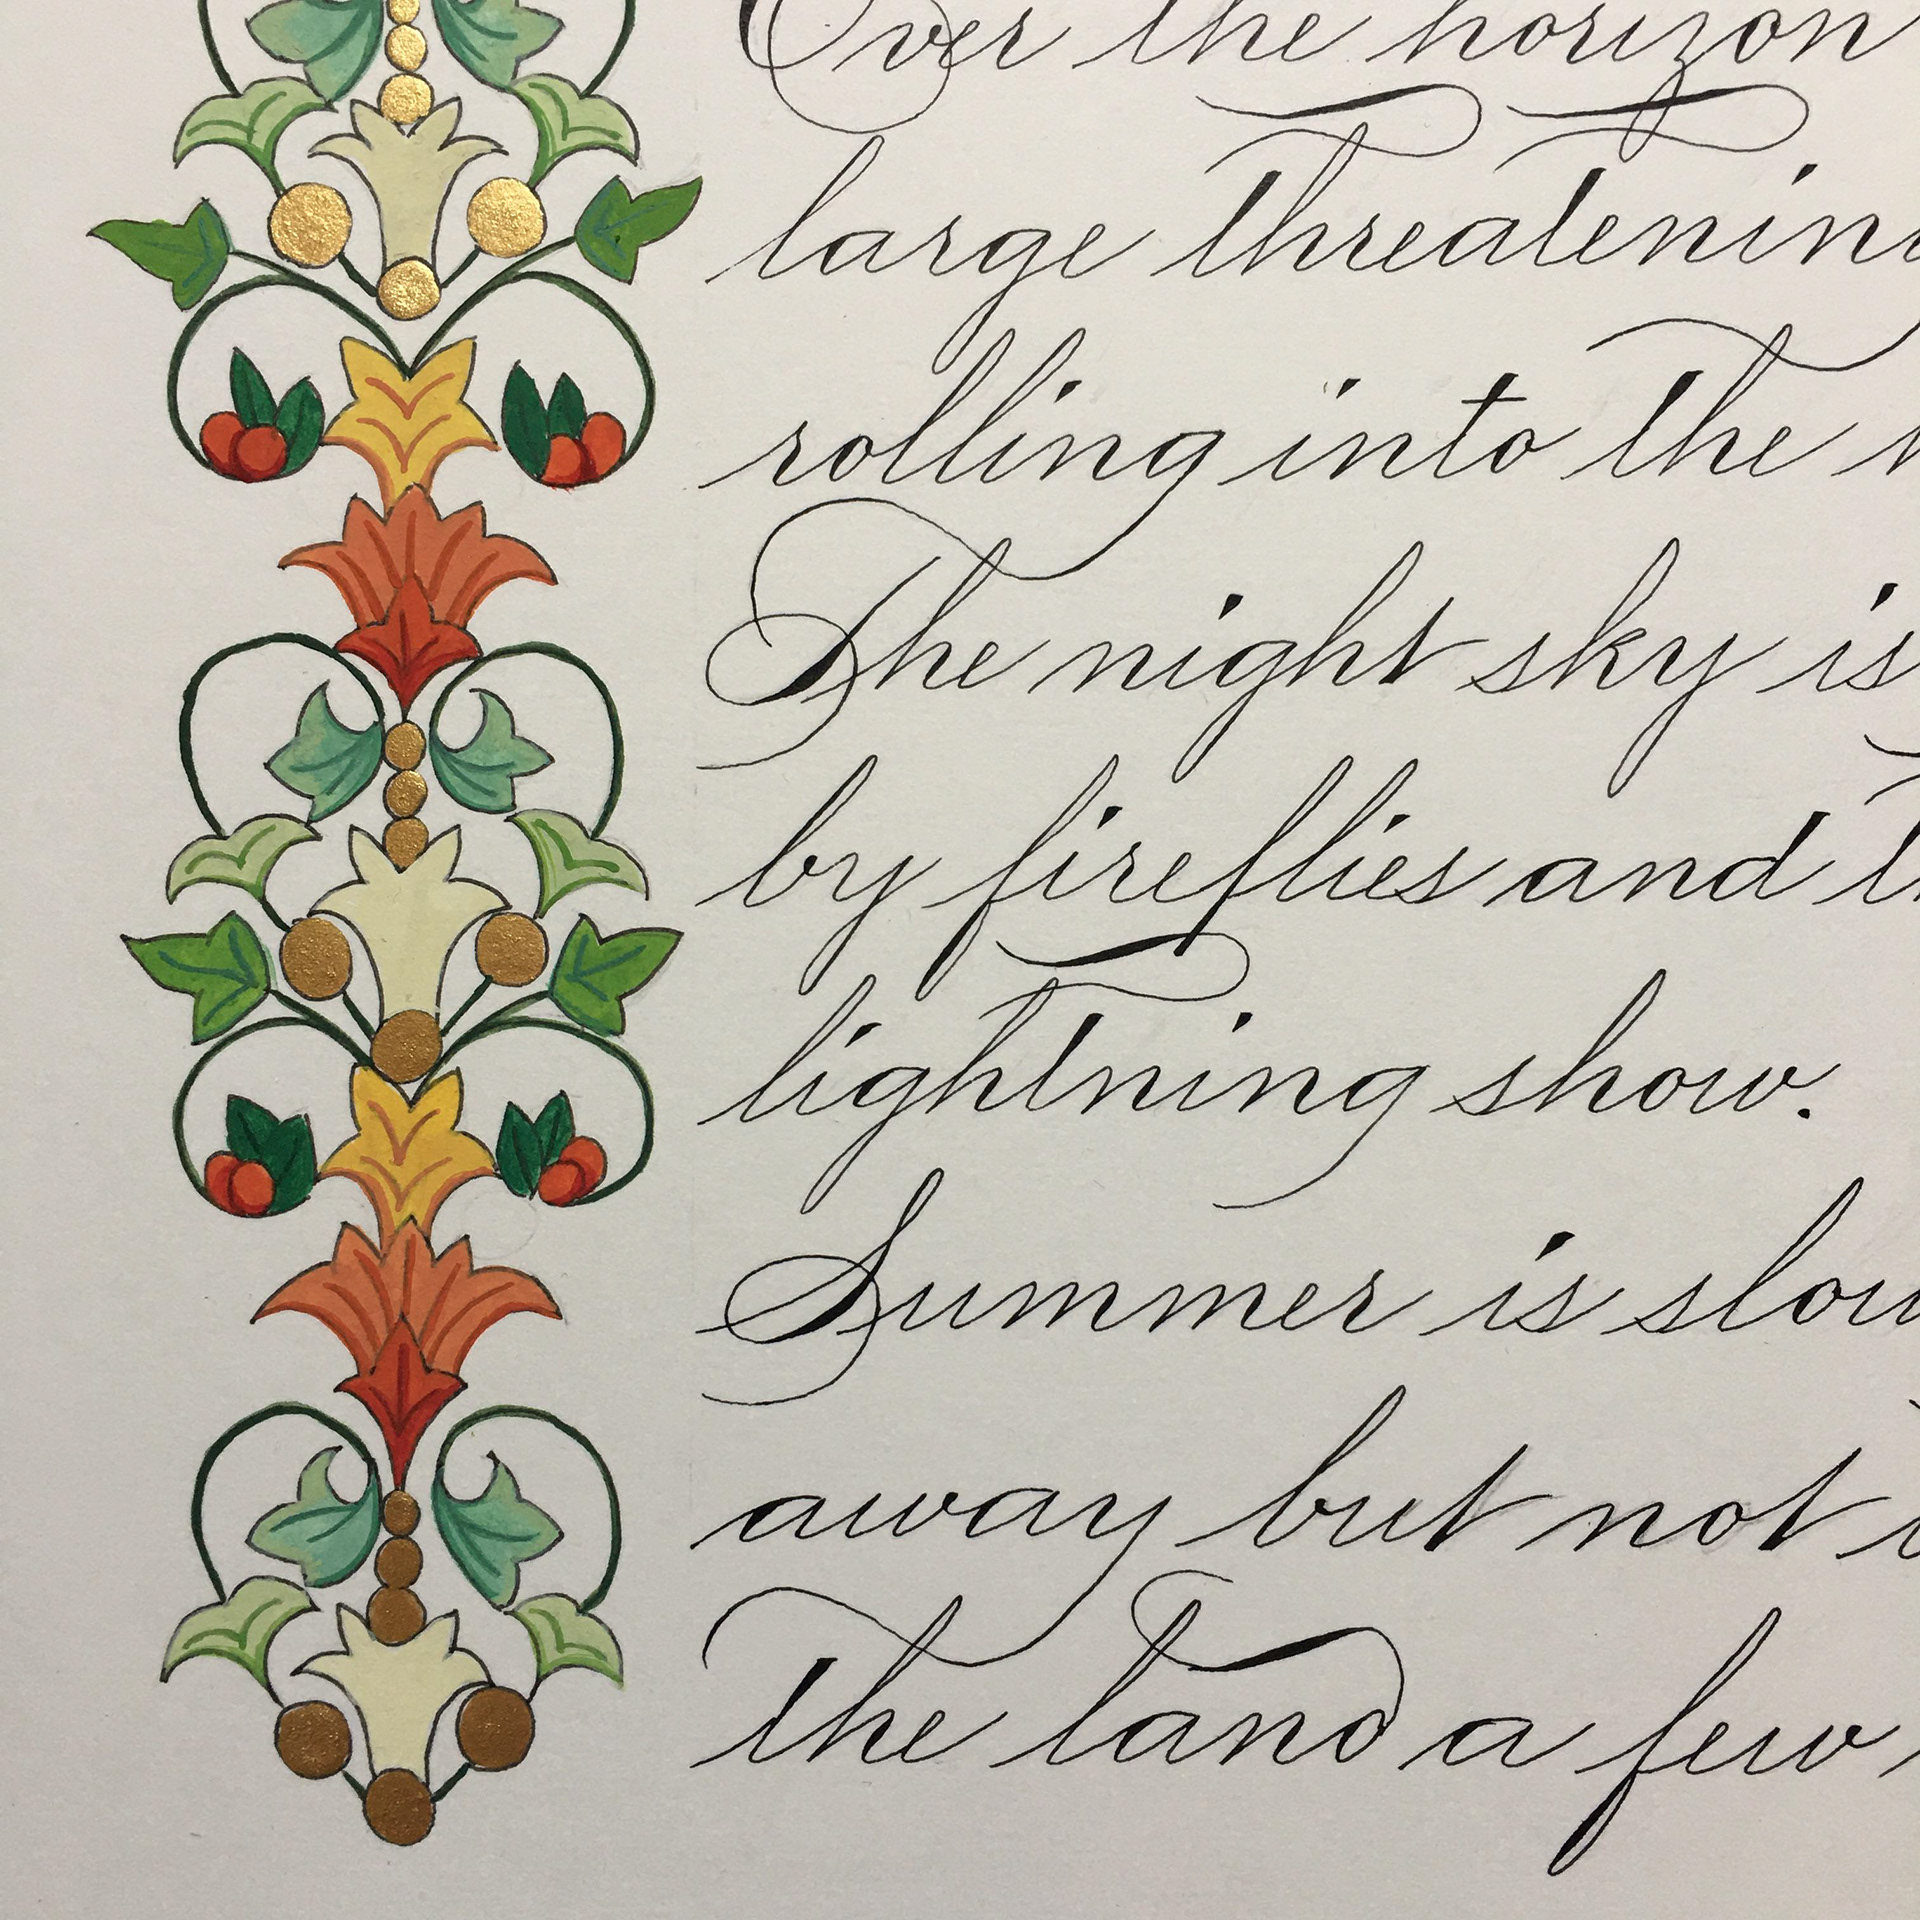 Over the horizon
large threatening
rolling into the
The night sky is
by fireflies and
lightning show.
Summer is slow
away but not
The land a few